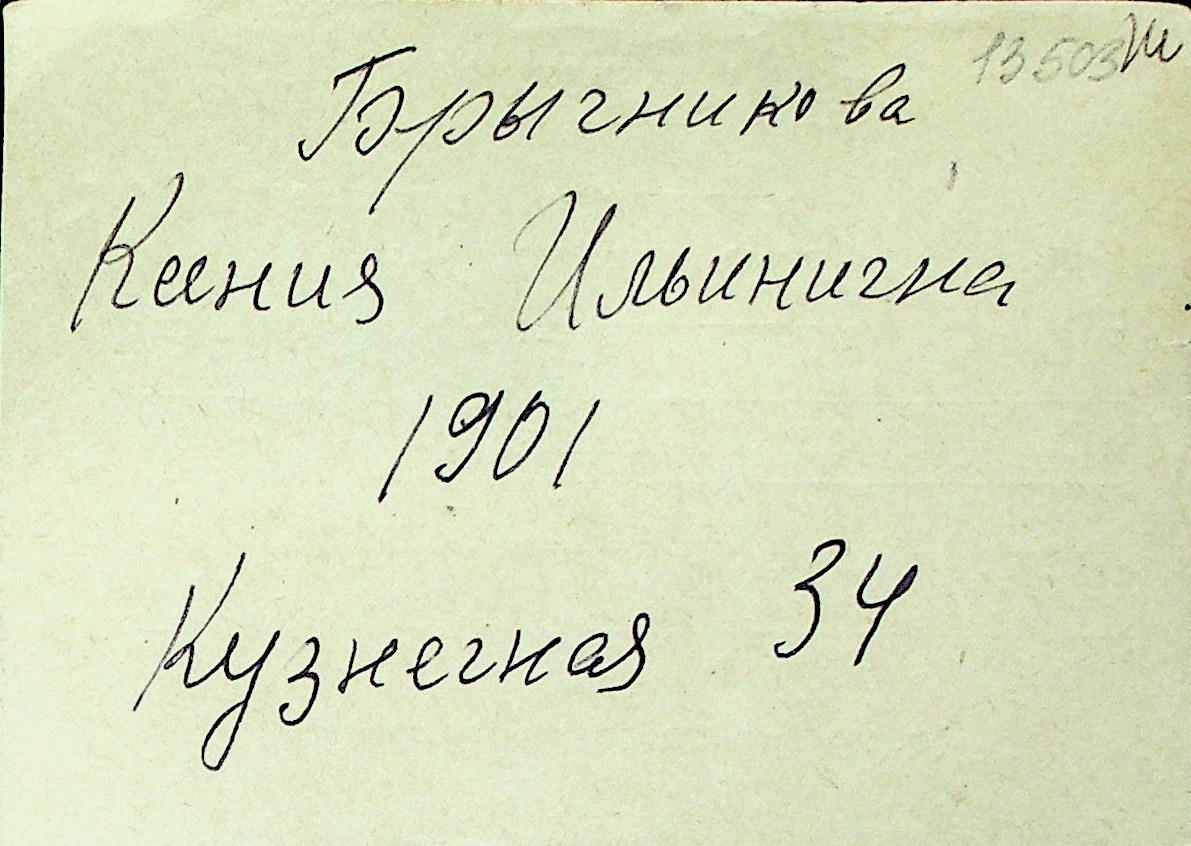 13503
Брычникова
Ксения Ильинична
1901
Кузнечная 34